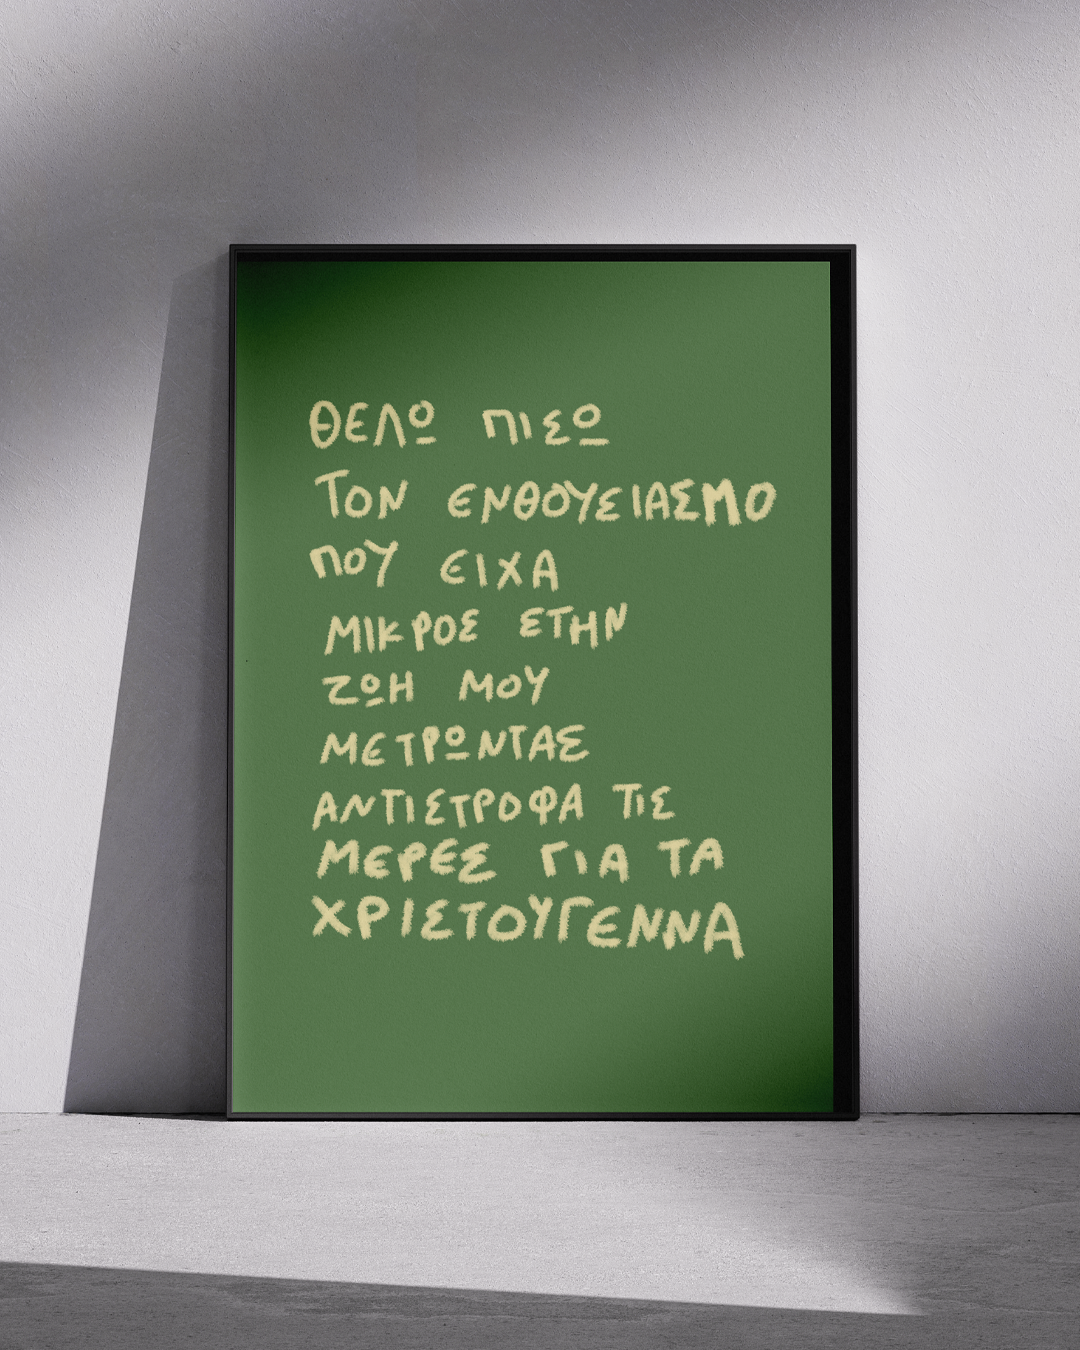 ΘΕΛΩ ΠΙΣΩ
ΤΟΝ ΕΝΘΟΥΣΙΑΣΜΟ
ΠΟΥ ΕΙΧΑ
ΜΙΚΡΟΣ ΣΤΗΝ
ΖΩΗ ΜΟΥ
ΜΕΤΡΩΝΤΑΣ
ΑΝΤΙΣΤΡΟΦΑ ΤΙΣ
ΜΕΡΕΣ ΓΙΑ ΤΑ
ΧΡΙΣΤΟΥΓΕΝΝΑ